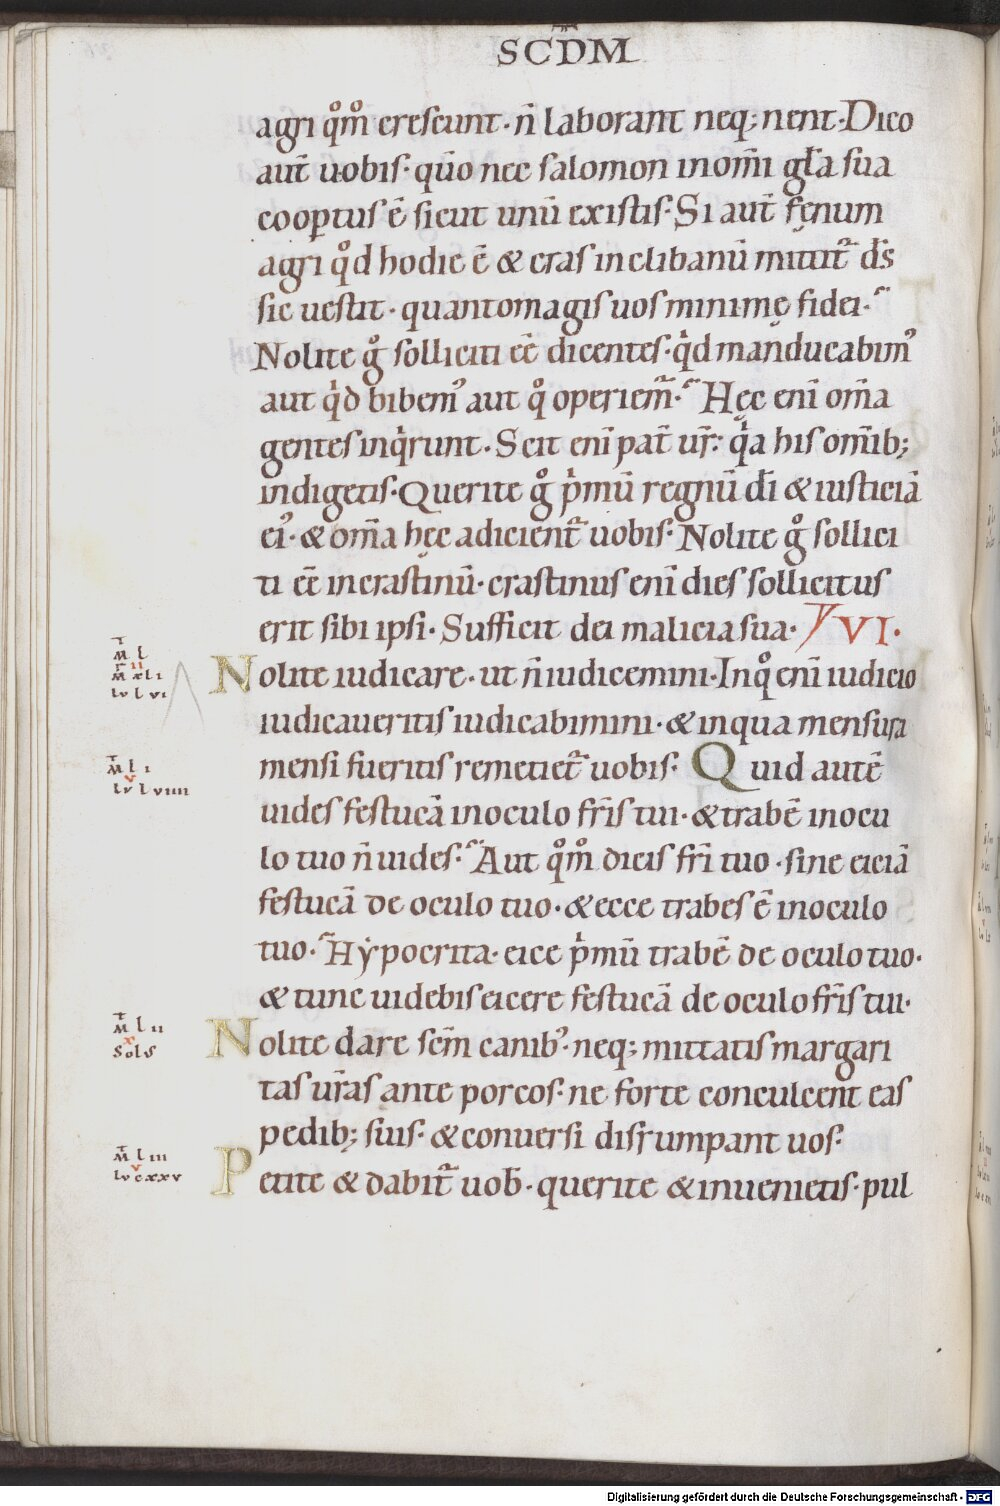 SCDM
agri qͦm̊ crescunt· n̄ laborant neq; nent· Dico
aut̄ uobis· qūo nec salomon in om̄i gl̄a sua
coop̱tus ē sicut unū ex istis· Si aut̄ fęnum
agri qͦd hodie ē & cras in clibanū mittit᷑ d̄s
sic uestit· quantomagis uos minimę fidei·
Nolite gͦ solliciti ēē dicentes· qͥd manducabim᾽
aut qͥd bibem᾽ aut qͦ operiem᷑· Hęc eni̅ om̄a
gentes inqͥrunt· Scit eni̅ pat̄ ur̄· qͥa his om̄ib;
indigetis· Querite gͦ pͥmū regnū d̄i & iusticiā
ei᾽· & om̄a hęc adicient᷑ uobis· Nolite gͦ sollici
ti ēē in crastinū· crastinus eni̅ dies sollicitus
erit sibi ipsi· Sufficit diei malicia sua· VI·
Nolite iudicare· ut n̄ iudicemini· In qͦ eni̅ iudicio
iudicaueritis iudicabimini· & in qua mensura
mensi fueritis remetiet᷑ uobis· Quid autē
uides festucā in oculo fr̄is tui· & trabē in ocu
lo tuo n̄ uides· Aut qͦm̊ dicis fr̄i tuo· sine eiciā
festucā de oculo tuo· & ecce trabes ē in oculo
tuo· Hẏpocrita· eice pͥmū trabē de oculo tuo·
& tunc uidebis eicere festucā de oculo fr̄is tui·
Nolite dare sc̄m canib᾽· neq; mittatis margari
tas ur̄as ante porcos· ne forte conculcent eas
pedib; suis· & conuersi disrumpant uos·
Petite & dabit᷑ uob̄· querite & inuenietis· pul
M̄ l
II
M̄ xl i
lv l vi
M̄ l i
v
lv l viiii
M̄ l ii
x
Solꝰ
M̄ l iii
v
lv cxxv
Digitalisierung gefördert durch die Deutsche Forschungsgemeinschaft - DFG